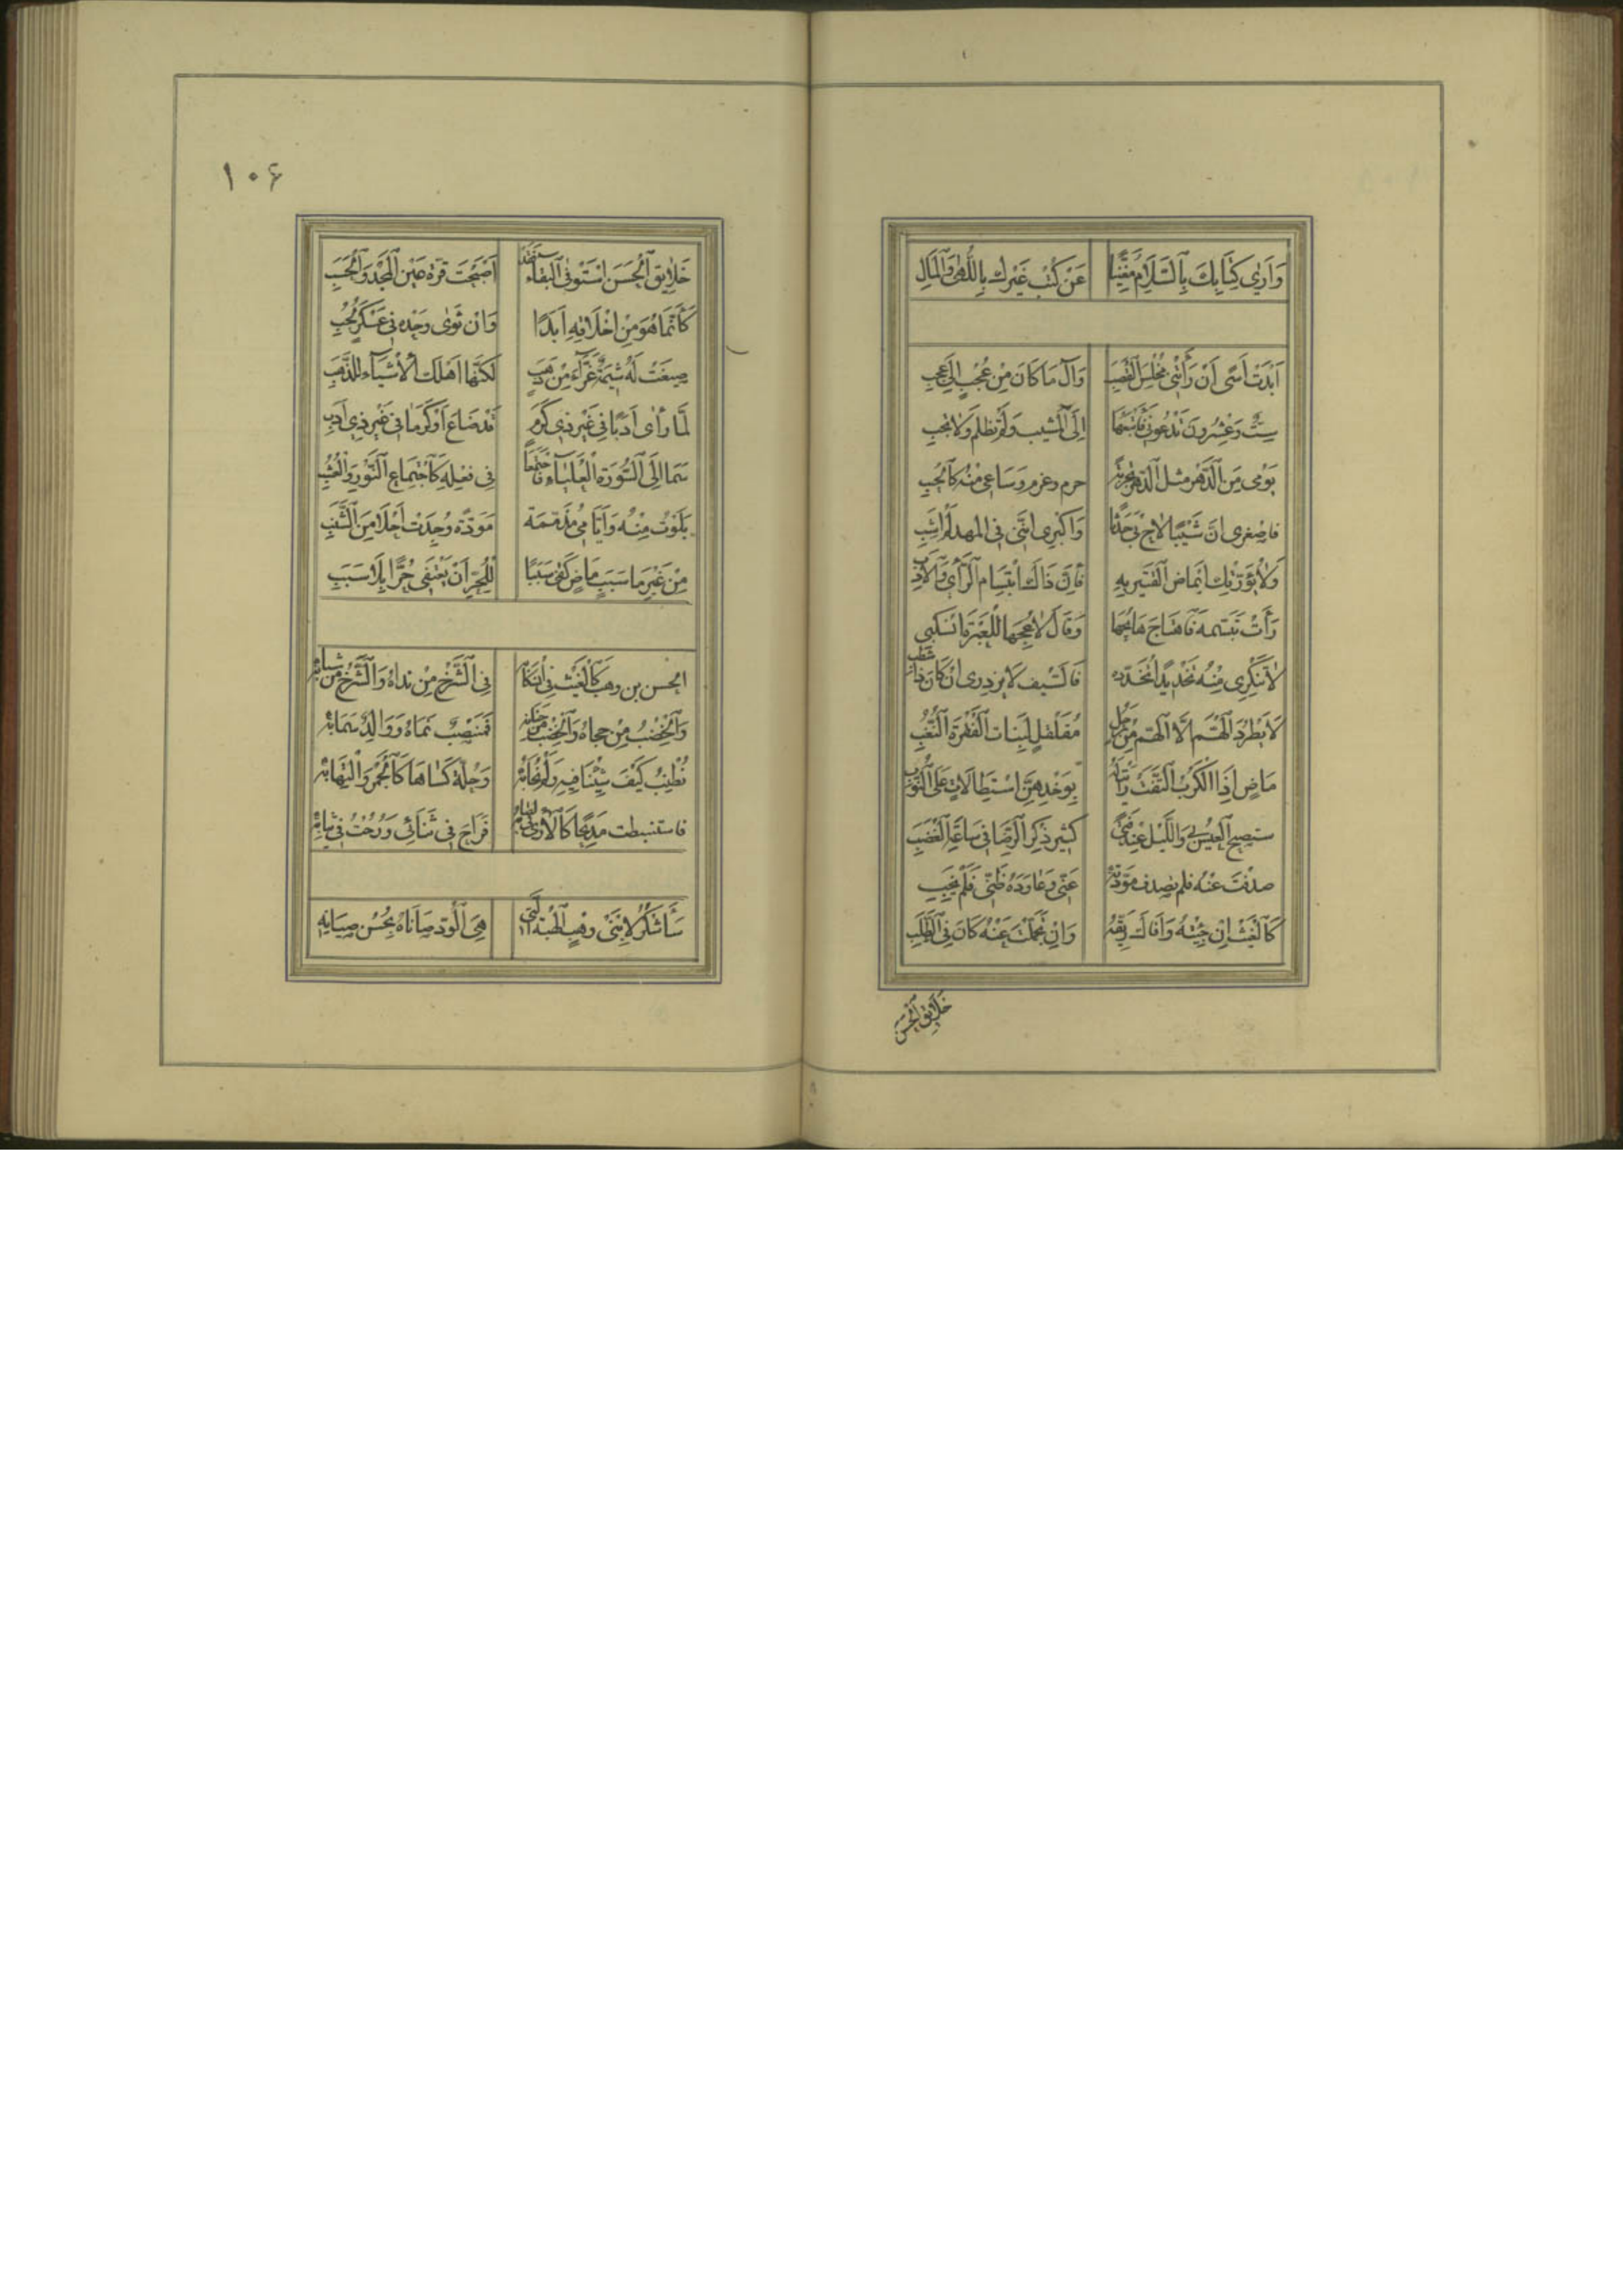 وَاَرٰى كِتَابَكَ بِالسَّلَامِ مُغْنِيًا عَنْ كُتْبِ غَيْرِكَ بِاللُّهٰى وَالْمَالِ
اَبْدَتْ اَسًى اَنْ رَأَتْنِى مُخْلِسَ الْقُصَبِ وَآلَ مَا كَانَ مِنْ عُجْبٍ اِلٰى عَجَبِ
سِتٌّ وَعِشْرُونَ تَدْعُونِى فَاَتْبَعُهَا اِلَى الْمَشِيبِ وَلَمْ تَظْلِمْ وَلَا تُجِبِ
يَوْمِى مِنَ الدَّهْرِ مِثْلُ الدَّهْرِ حزم وعزم وَسَاعِى مِنْهُ كَالْحِقَبِ
فاصغرى اَنَّ شَيْبًا لَاحَ بِى حَدَثًا وَاَكْبِرِى اَنَّنِى فِى المهد لَمْ اَشِبِ
وَلَا يُؤَرِّقْكِ اِيمَاضُ الْقَتِيرِ بِهِ فَاِنَّ ذَاكَ ابْتِسَامُ الرَّأْىِ وَالْاَدَبِ
رَأَتْ تَبَسُّمَهُ فَاهْتَاجَ هَائِجُهَا وَقَالَ لَاعِجُهَا لِلْعَبْرَةِ انْسَكِبِى
لَا تُنْكِرِى مِنْهُ تَخْدِيدًا تَخَدَّدَهُ فَالسَّيْفُ لَا يزدرى اِنْ كَانَ ذَا شُطَبِ
لَا يَطْرُدُ الْهَمَّ اِلَّا الْهَمُّ مِنْ رَجُلٍ مُقَلْقِلٍ لِبَنَاتِ الْقَفْرَةِ النُّعُبِ
مَاضٍ اِذَا الْكُرَبُ الْتَفَّتْ رَأَيْتَ لَهُ بِوَخْدِهِنَّ اسْتِطَالَاتٍ عَلَى النُّوَبِ
ستصبح الْعِيسُ بِى وَاللَّيْلُ عِنْدَ فَتًى كَثِيرِ ذِكْرِ الرِّضَا فِى سَاعَةِ الْغَضَبِ
صدفْتُ عَنْهُ فلم تصدف مَوَدَّتُهُ عَنِّى وَعَاوَدَهُ ظَنِّى فَلَمْ يَخِبِ
كَالْغَيْثِ اِنْ جِئْتَهُ وَافَاكَ رَيِّقُهُ وَاِنْ تَحَمَّلْتَ عَنْهُ كَانَ فِى الطَّلَبِ
خَلَائِقُ الْحَسَنِ
١٠۶
خَلَائِقَ الْحَسَنِ اسْتَوْفِى الْبَقَاءَ فَقَدْ اَصْبَحْتِ قُرَّةَ عَيْنِ الْمَجْدِ وَالْحَسَبِ
كَأَنَّمَا هُوَ مِنْ اَخْلَاقِهِ اَبَدًا وَاِنْ ثَوٰى وَحْدَهُ فِى عَسْكَرٍ لَجِبِ
صِيغَتْ لَهُ شِيمَةٌ غَرَّاءُ مِنْ ذَهَبٍ لٰكِنَّهَا اَهْلَكُ الْاَشْيَاءِ لِلذَّهَبِ
لَمَّا رَأٰى اَدَبًا فِى غَيْرِ ذِى كَرَمٍ قَدْ ضَاعَ اَوْ كَرَمًا فِى غَيْرِ ذِى اَدَبِ
سَمَا اِلَى السُّورَةِ الْعَلْيَاءِ فَاجْتَمَعَا فِى فِعْلِهِ كَاجْتِمَاعِ النَّوْرِ وَالْعُشُبِ
بَلَوْتُ مِنْهُ وَاَيَّامِى مُذَمَّمَةٌ مَوَدَّةً وُجِدَتْ اَحْلٰى مِنَ الشَّنَبِ
مِنْ غَيْرِ مَا سَبَبٍ مَاضٍ كَفٰى سَبَبًا لِلْحُرِّ اَنْ يَعْتَفِى حُرًّا بِلَا سَبَبِ
الحسن بن وهب كَالْغَيْثِ فِى انْسِكَابِهْ فِى الشَّرْخِ مِنْ نداهُ وَالشَّرْخِ مِنْ شبابِهْ
وَالْخِصْبِ مِنْ حجاهُ وَالْخِصْبِ مِنْ جَنَابِهْ فَمَنْصِبٌ نَمَاهُ وَوَالِدٌ سَمَا بِهْ
نُطْنِبُ كَيْفَ شِئْنَا فِيهِ وَلَمْ نُحَابِهْ وَحُلَّةٌ كَسَاهَا كَالْجَمْرِ وَالْتِهَابِهْ
فاستنبطت مَدِيحًا كَالْاَرْىِ فِى لِصَابِهْ فَرَاحَ فِى ثَنَائِى وَرُحْتُ فِى ثِيَابِهْ
سَأَشْكُرُ لِابْنَىْ وَهْبٍ الْهِبَةَ الَّتِى هِىَ الْوُدُّ صَانَاهُ بِحُسْنِ صِيَانِهِ